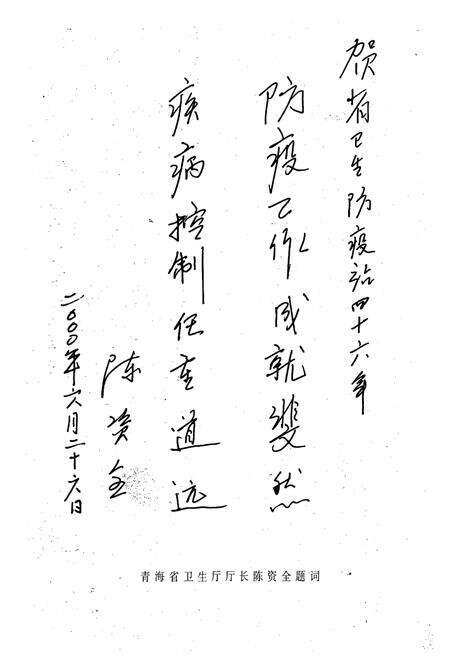 贺省卫生防疫站四十六年
防疫工作成就斐然
疾病控制任重道远
陈资全
二〇〇〇年六月二十六日
青海省卫生厅厅长陈资全题词